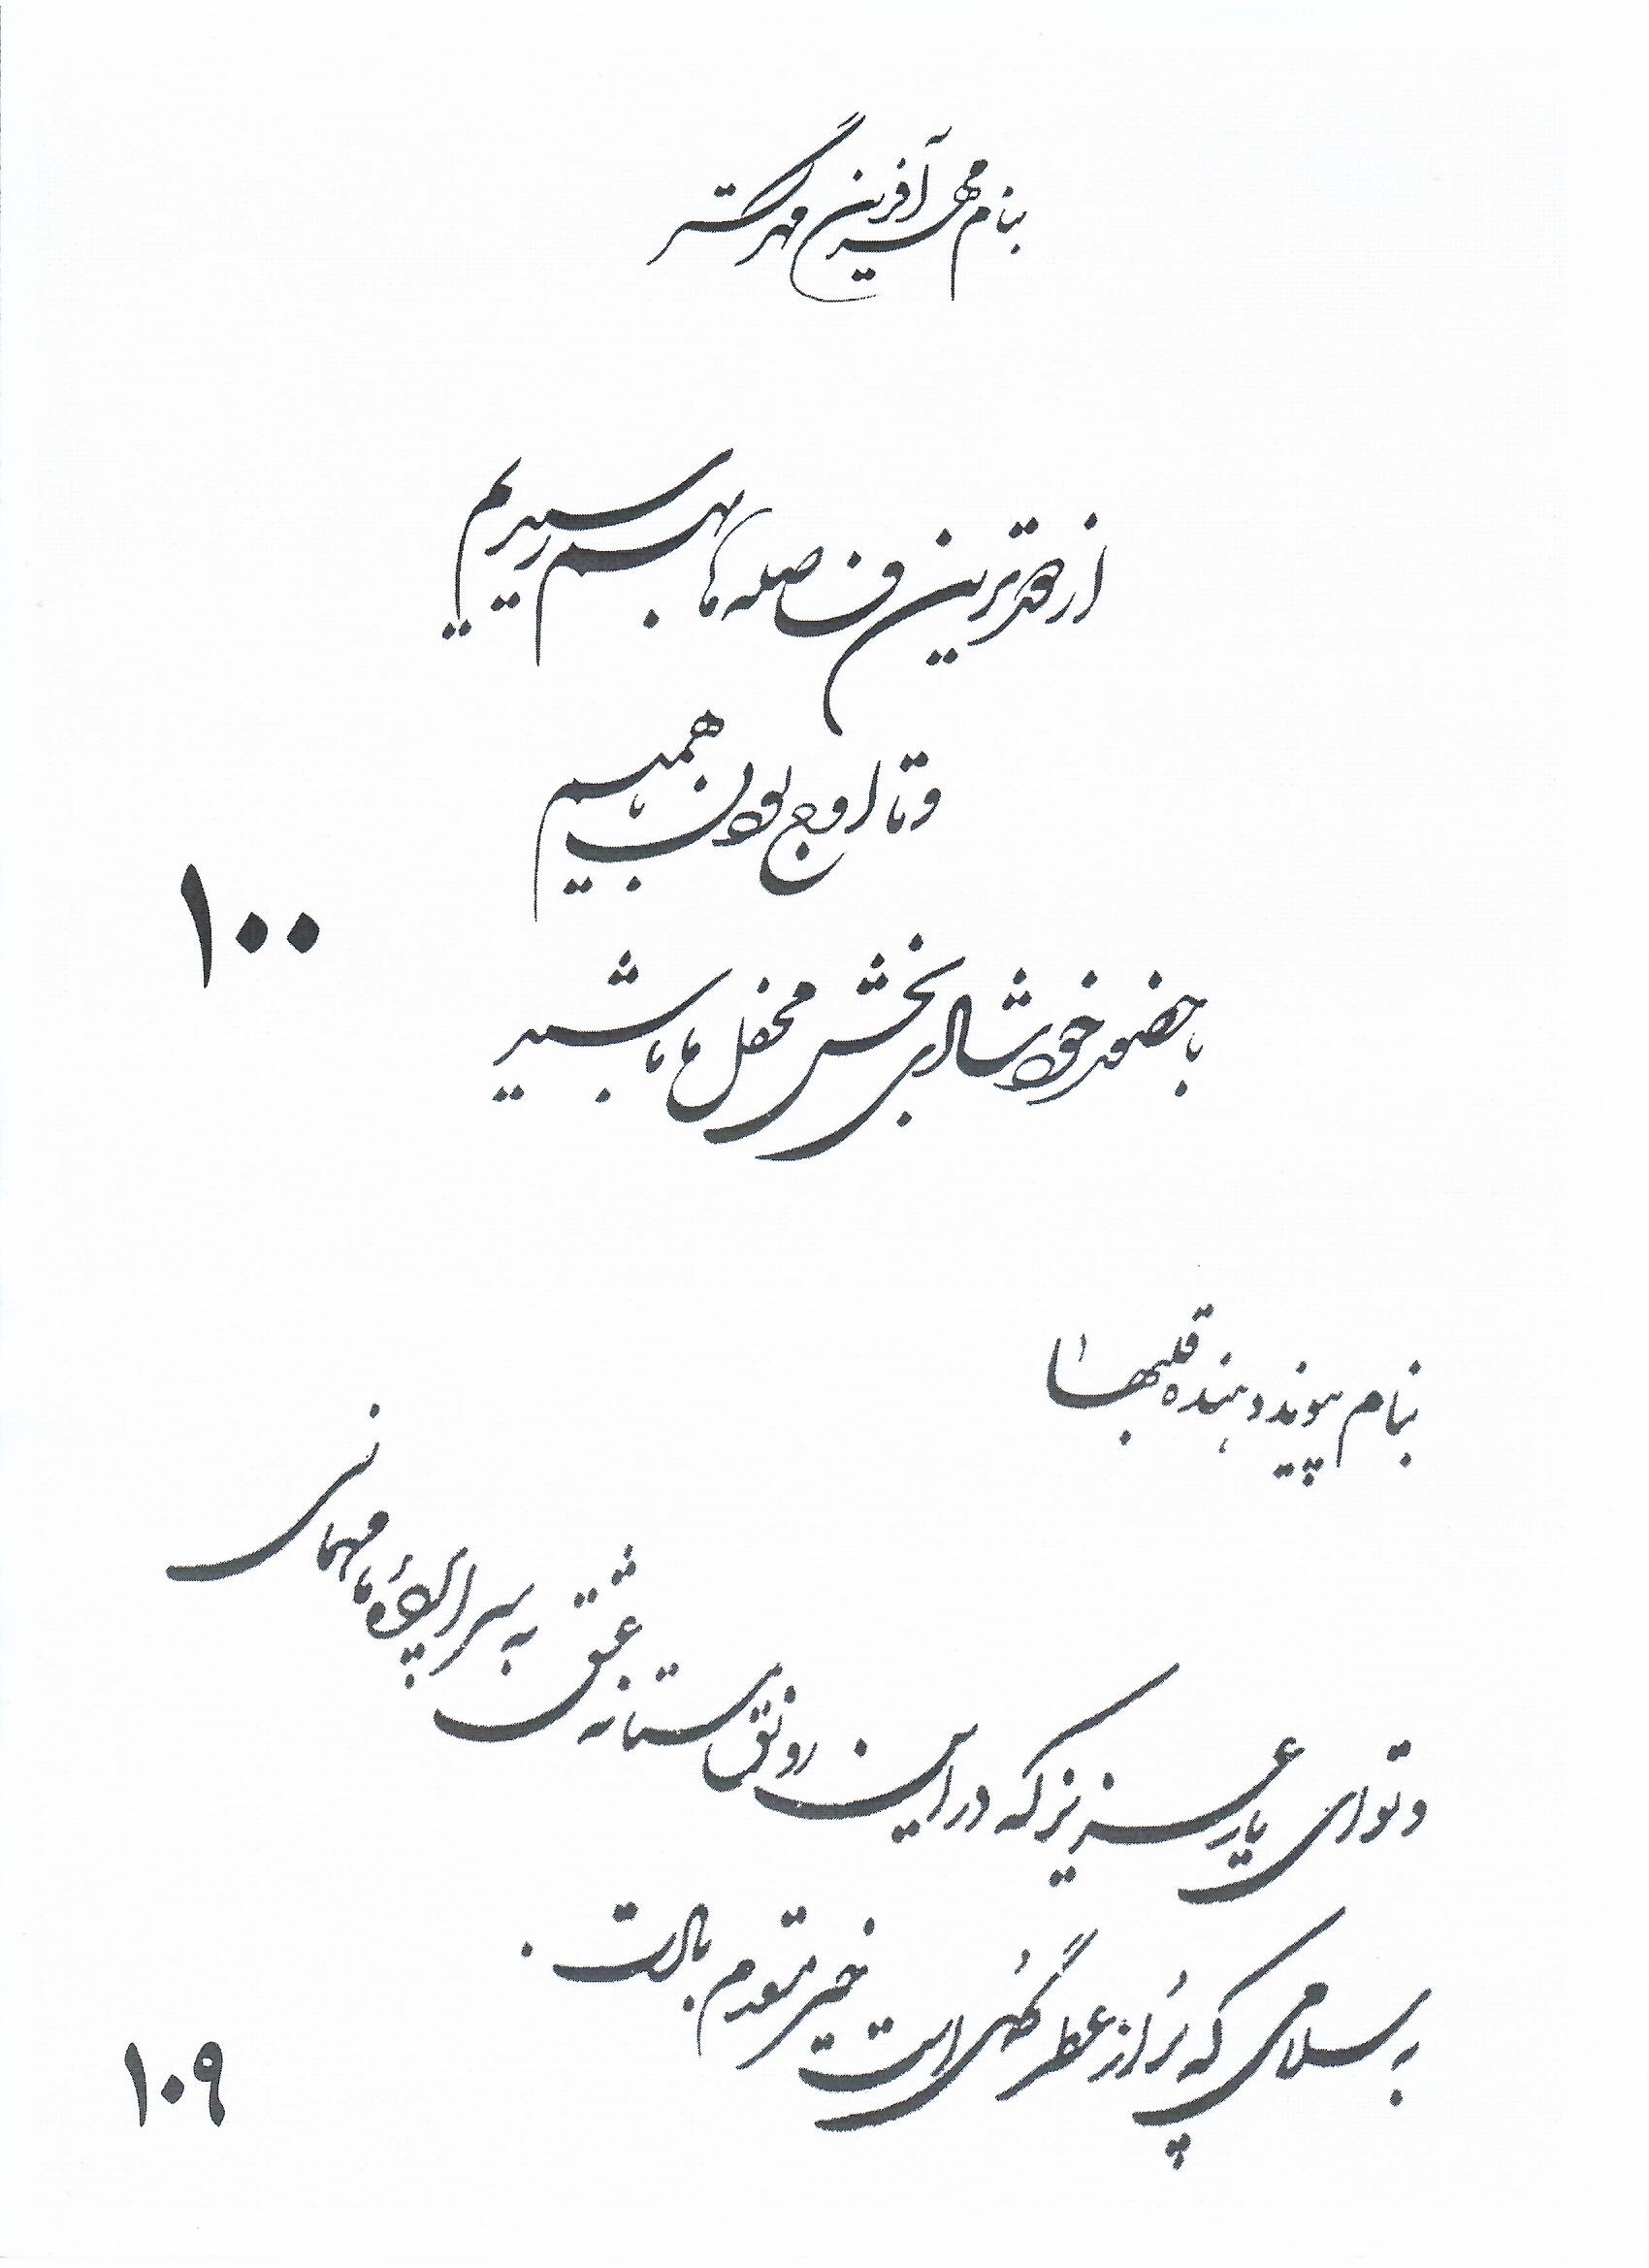 بنام مهر آفرین مهر گستر
از دورترین فاصله ها بهم رسیدیم
و تا اوج بودن با همیم
۱۰۰
با حضور خود شادی بخش محفل ما باشید
بنام پیوند دهنده قلبها
و تو ای یار عزیز که در این رونق مستانه عشق به سراپرده ما مهمانی
به سلامی که پُر از عطر گلهای است خیر مقدم بادت .
۱۰۹